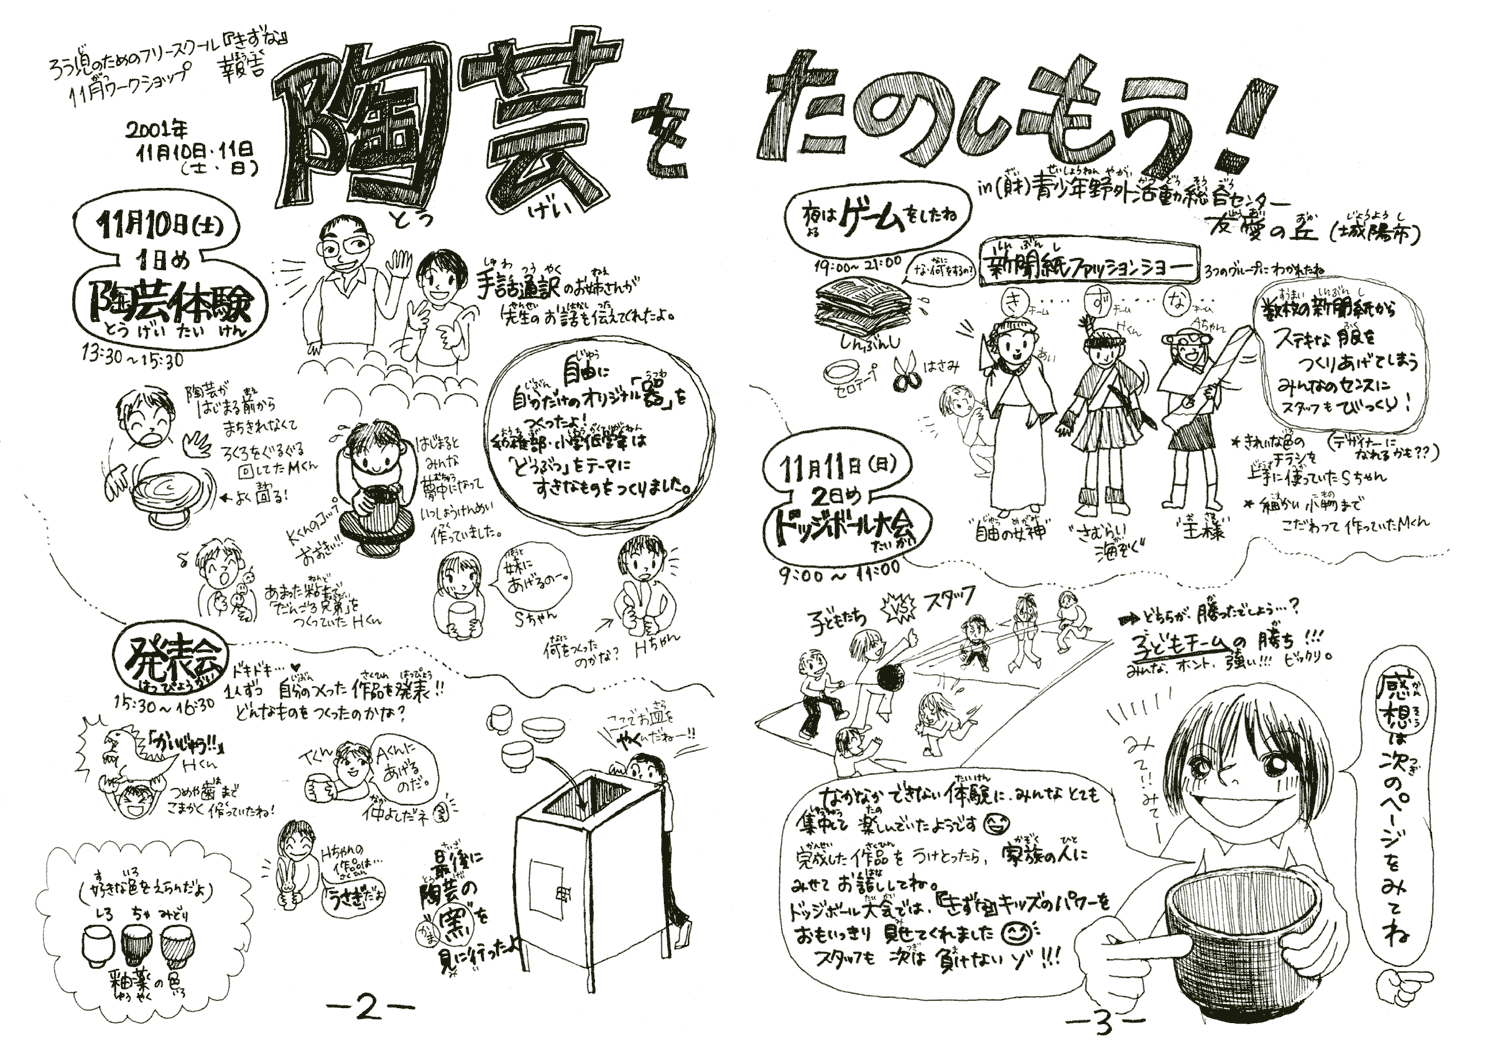 ろう児のためのフリースクール『きずな』
11月ワークショップ 報告
2001年
11月10日・11日
(土・日)
陶芸をたのしもう!
とう げい
in(財)青少年野外活動総合センター
友愛の丘(城陽市)
11月10日(土)
1日め
陶芸体験
とう げい たい けん
13:30~15:30
手話通訳のお姉さんが
先生のお話も伝えてくれたよ。
自由に
自分だけのオリジナル「器」を
つくったよ!
幼稚部・小学低学年は
「どうぶつ」をテーマに
すきなものをつくりました。
陶芸が
はじまる前から
まちきれなくて
ろくろをぐるぐる
回してたMくん
←よく回る!
Kくんのコップ
おおきい!!
はじまると
みんな
夢中になって
いっしょうけんめい
作っていました。
あまった粘土で
「だんご3兄弟」を
つくっていたHくん
妹に
あげるのー。
Sちゃん
何をつくった
のかな? Hちゃん
発表会
はっぴょうかい
15:30~16:30
ドキドキ…♥
1人ずつ 自分のつくった作品を発表!!
どんなものをつくったのかな?
「かいじゅう!!」
Hくん
つめや歯まで
こまかく作っていたね!
Tくん
Aくんに
あげる
のだ。
仲よしだネ
Hちゃんの
作品は…
うさぎだよ
(好きな色をえらんだよ)
しろ ちゃ みどり
釉薬の色
ゆう やく いろ
ここでお皿を
やくんだねー!!
最後に
陶芸の
窯を
がま
見に行ったよ
-2-
夜はゲームをしたね
19:00~21:00
な・何をするの?
しんぶんし
セロテープ
はさみ
新聞紙ファッションショー
3つのグループにわかれたね
きチーム…ずチーム…なチーム
あい
Hくん
Aちゃん
"自由の女神"
"さむらい
海ぞく"
"王様"
数枚の新聞紙から
ステキな服を
つくりあげてしまう
みんなのセンスに
スタッフもびっくり!
*きれいな色の
チラシを
上手に使っていたSちゃん
(デザイナーに
なれるかも??)
*細かい小物まで
こだわって作っていたMくん
11月11日(日)
2日め
ドッジボール大会
たいかい
9:00~11:00
子どもたち VS スタッフ
➡どちらが勝ったでしょう…?
子どもチームの勝ち!!!
みんな、ホント、強い!!! ビックリ。
みて!!みてー
なかなかできない体験に、みんなとても
集中して楽しんでいたようです
完成した作品をうけとったら、家族の人に
みせてお話ししてね。
ドッジボール大会では、『きずな』キッズのパワーを
おもいっきり見せてくれました
スタッフも次は負けないゾ!!!
感想は次のページをみてね
-3-